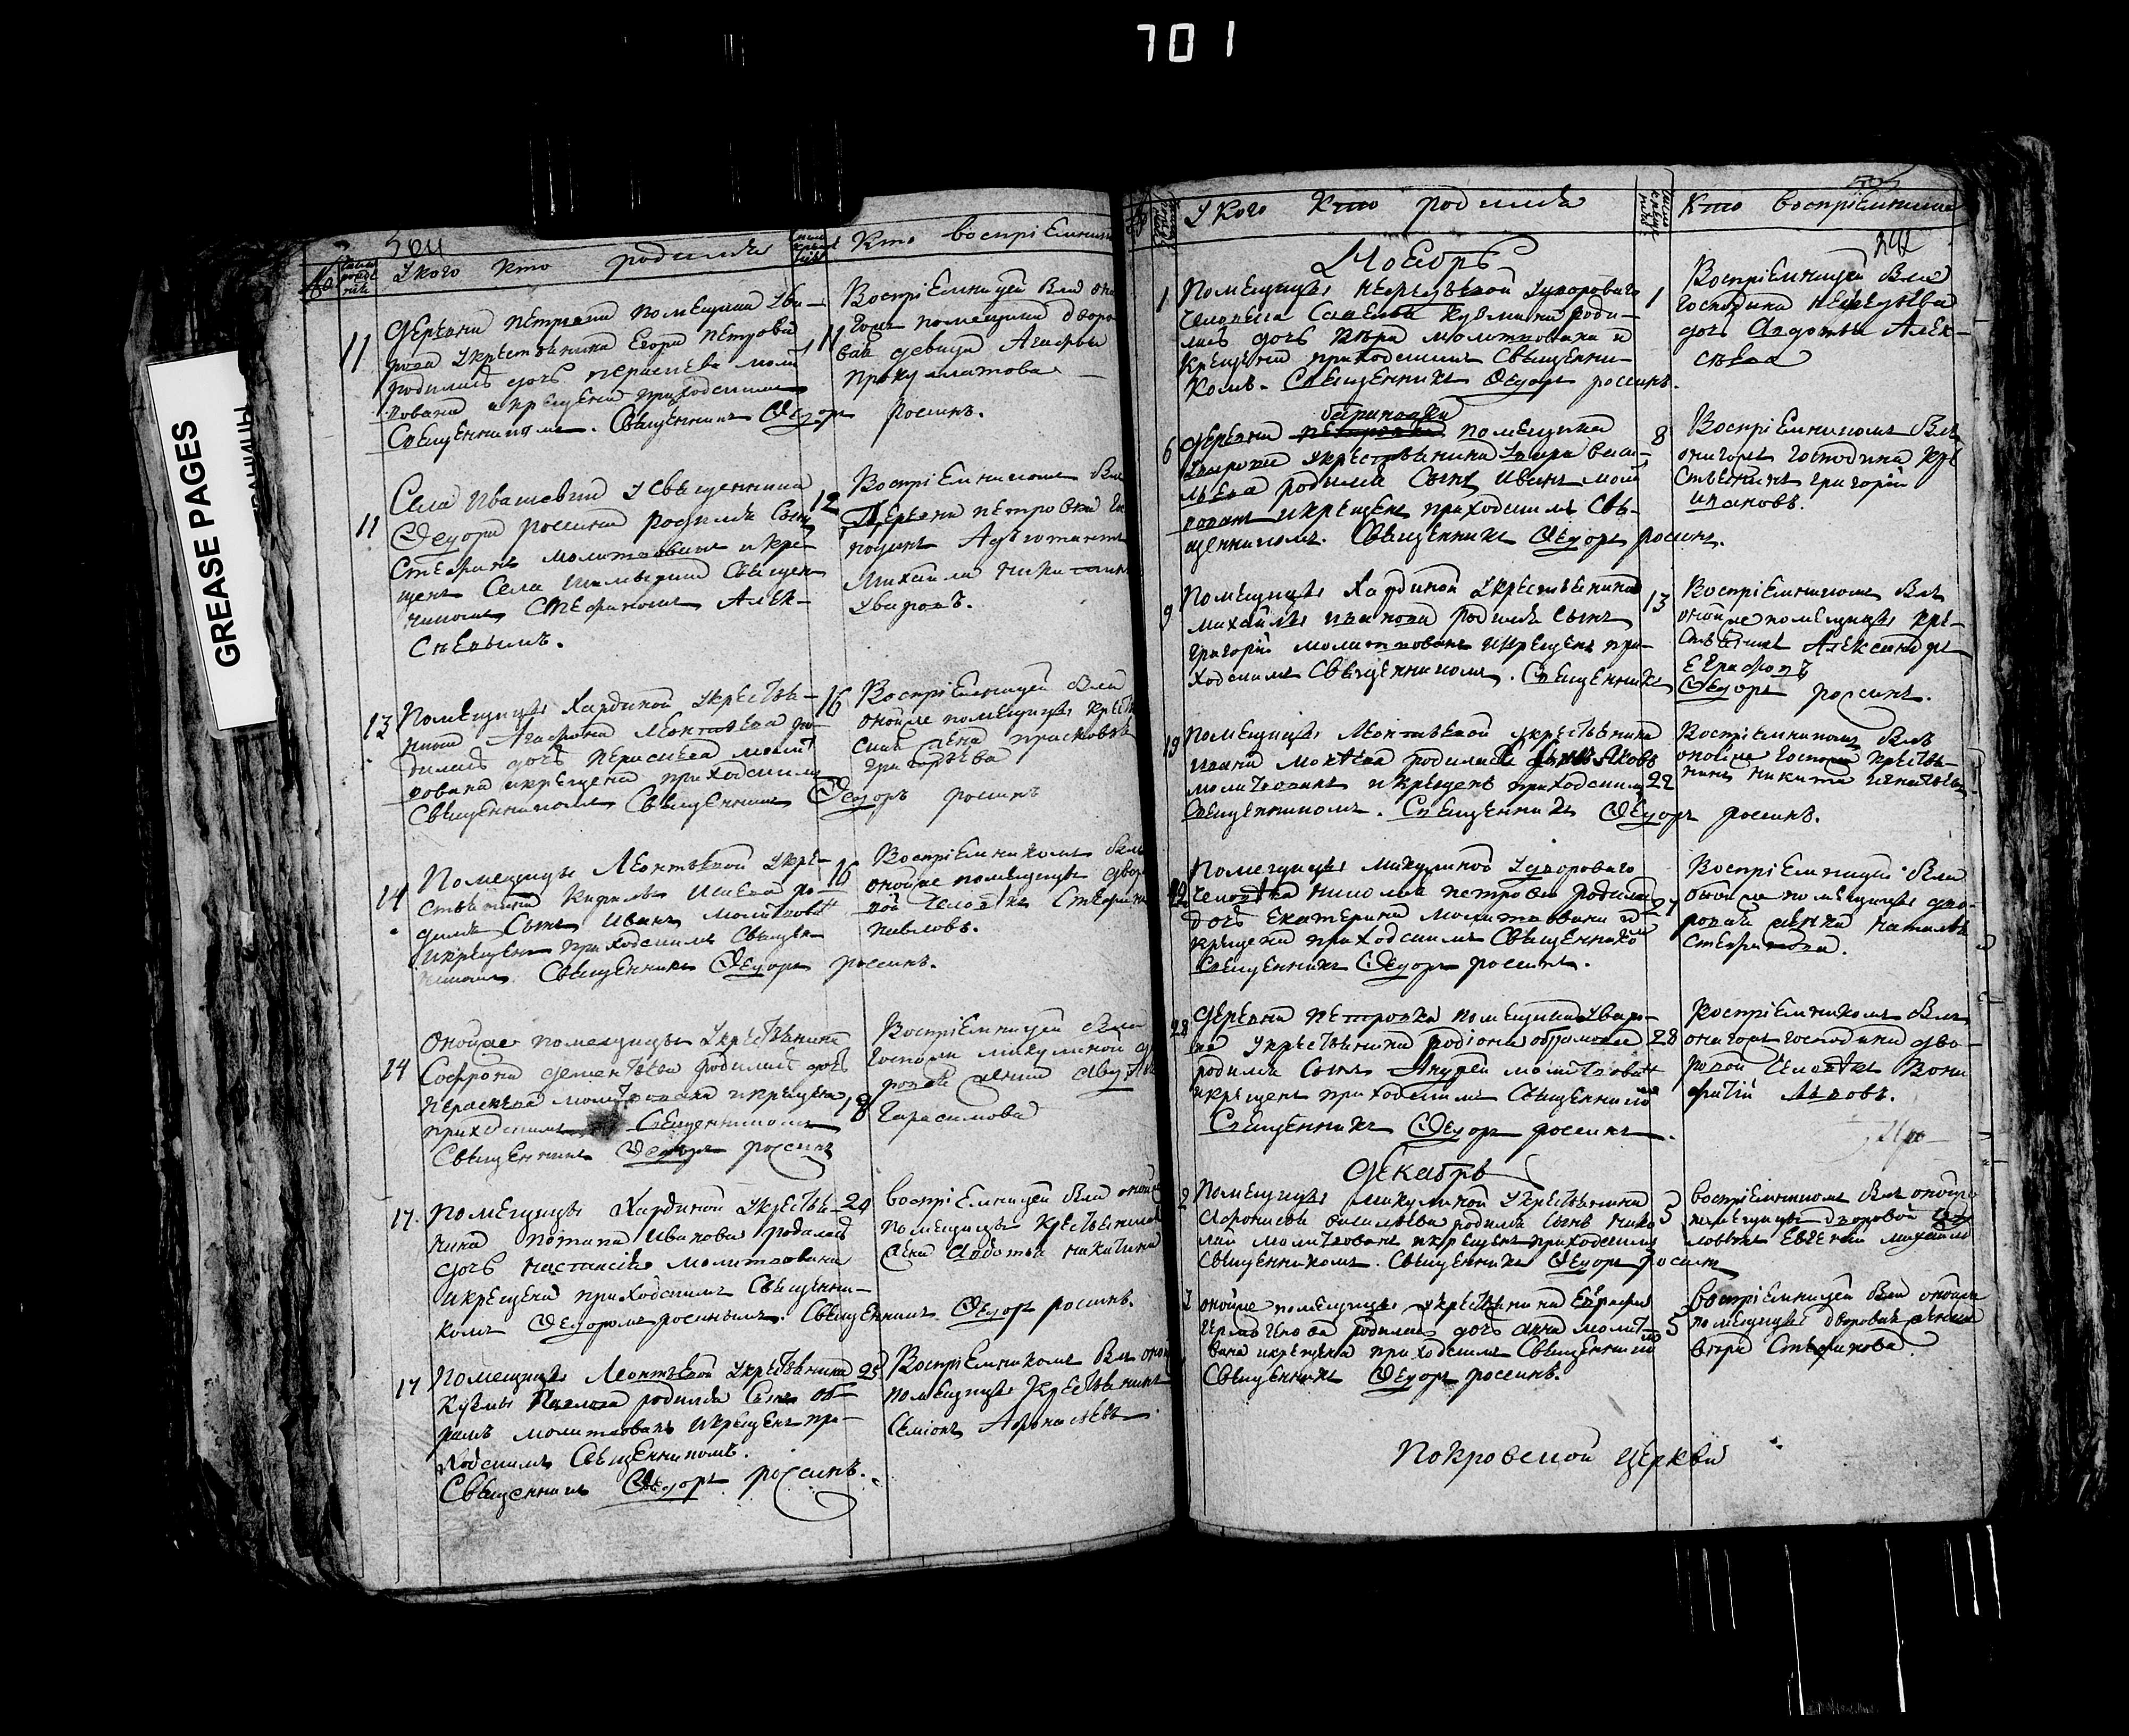 701
GREASE PAGES
504
У кого кто родился
Кто воспрiемники
11 Деревни Петровки помещика Ува-
рова у крестьянина Егора Петрова
родилась дочь Параскева молит
вована и крещена приходским
Священником. Священник Федор Россинъ.
11
Воспрiемницей была
помещика дворо
вая девица Агафья
11 Села Ивашевки у священника
Федора Россина родился сынъ
Стефанъ молитвованъ и кре
щенъ Села Священ
никомъ Стефаномъ Алек-
сеевымъ.
12
Воспрiемникомъ былъ
Деревни Петровки Гос
подинъ Адъютантъ
Михаила
Уваровъ.
13 Помещицы Хардиной у крестья-
нина Агафона Леонтьева ро-
дилась дочь Параскева молит
вована и крещена приходскимъ
Священникомъ Священникъ Федоръ Россинъ
16
Воспрiемницей была
оной же помещицы крестья
нина жена Прасковья
Григорьева
14 Помещицы Леонтьевой у кре-
стьянина Кирилы Исаева ро-
дился Сынъ Иванъ молитвованъ
и крещенъ приходскимъ Священ-
никомъ. Священникъ Федоръ Россинъ.
16
Воспрiемникомъ былъ
оной же помещицы дворо
вой человекъ Стефанъ
Павловъ.
14 Оной же помещицы у крестьянина
Софрона Дементьева родилась дочь
Параскева молитвована и крещена
приходскимъ Священникомъ
Священникъ Федоръ Россинъ
18
Воспрiемницей была
госпожи Микулиной дво
ровая женка Авдотья
Гарасимова
17. Помещицы Хардиной у крестья-
нина Потапа Иванова родилась
дочь Настасiя молитвована
и крещена приходскимъ Священни-
комъ Федоромъ Россинымъ. Священникъ Федоръ Россинъ.
24
воспрiемницей была оной же
помещицы крестьянина
жена Авдотья Никитина
17 Помещицы Леонтьевой у крестьянина
Кузмы Павлова родился Сынъ Аб-
рамъ молитвованъ и крещенъ при-
ходскимъ Священникомъ.
Священникъ Федоръ Россинъ.
25
Воспрiемникомъ былъ оной
помещицы Крестьянинъ
Семiонъ Афонасьевъ.
505
У кого кто родился
Кто воспрiемники
Ноябрь
1 Помещицы Нефедьевой у дворового
человека Савелья Кузмина роди-
лась дочь молитвована и
крещена приходскимъ Священни-
комъ. Священникъ Федоръ Россинъ.
1
Воспрiемницей была
Господина Нефедьева
дочь Авдотья Алек-
сеева
6 Деревни помещика
у крестьянина Васи-
льева родился Сынъ Иванъ молит
вованъ и крещенъ приходскимъ Свя-
щенникомъ. Священникъ Федоръ Россинъ.
8
Воспрiемникомъ былъ
онагожъ Господина кре
стьянинъ Григорiй
Ивановъ.
9 Помещицы Хардиной у крестьянина
Михайлы Иванова родился сынъ
Григорiй молитвованъ и крещенъ при-
ходскимъ Священникомъ. Священникъ Федоръ Россинъ.
13
Воспрiемникомъ былъ
оной же помещицы кре-
стьянинъ Александръ
Евграфовъ
19 Помещицы Леонтьевой у крестьянина
Ивана Мокеева родился сынъ Яковъ
молитвованъ и крещенъ приходскимъ
Священникомъ. Священникъ Федоръ Россинъ.
22
Воспрiемникомъ былъ
оной же Госпожи крестья-
нинъ Никита Игнатьевъ
Помещицы Микулиной у дворового
человека Николая Петрова родилась
дочь Екатерина молитвована и
крещена приходскимъ Священнико
Священникъ Федоръ Россинъ.
27
Воспрiемницей была
оной же помещицы дво-
ровая женка Наталья
Стефанова.
28 Деревни Петровки помещика Уваро-
ва у крестьянина Родiона Абрамова
родился Сынъ Андрей молитвованъ
и крещенъ приходскимъ Священникомъ
Священникъ Федоръ Россинъ.
28
Воспрiемникомъ былъ
онагожъ господина дво-
ровой человекъ Вони
фатiй Львовъ.
Декабрь
2 Помещицы Микулиной у крестьянина
Афонасья Васильева родился сынъ Нико
лай молитвованъ и крещенъ приходскимъ
Священникомъ. Священникъ Федоръ Россинъ
5
воспрiемникомъ былъ оной же
помещицы дворовой че
ловекъ Евгенiй Михайло
оной же помещицы у крестьянина Евграфа
родилась дочь Анна молит
вована и крещена приходскимъ Священникомъ
Священникъ Федоръ Россинъ.
5
воспрiемницей была оной же
помещицы дворовая женка
Вера Стефанова
Покровской церкви